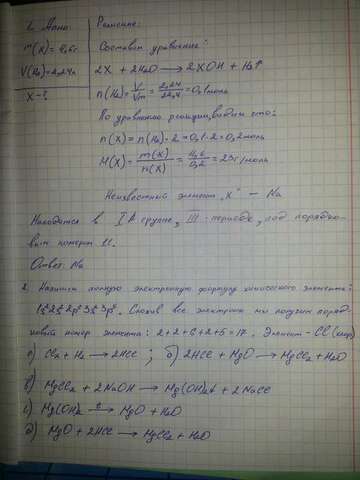 1. Дано: Решение:
m(X) = 4,6г Составим уравнение:
V(H2) = 2,24л 2X + 2H2O → 2XOH + H2↑
X - ? n(H2) = V/Vm = 2,24/22,4 = 0,1 моль
По уравнению реакции, видим что:
n(X) = n(H2)·2 = 0,1·2 = 0,2 моль
M(X) = m(X)/n(X) = 4,6/0,2 = 23 г/моль
Неизвестный элемент "X" — Na
Находится в IA группе, III - периоде, под порядко-
вым номером 11.
Ответ: Na
2. Напишем полную электронную формулу химического элемента:
1s²2s²2p⁶3s²3p⁵. Сложив все электроны мы получим поряд-
ковый номер элемента: 2+2+6+2+5=17. Элемент - Cl (хлор)
а) Cl2 + H2 → 2HCl ; б) 2HCl + MgO → MgCl2 + H2O
в) MgCl2 + 2NaOH → Mg(OH)2↓ + 2NaCl
г) Mg(OH)2 → MgO + H2O
д) MgO + 2HCl → MgCl2 + H2O